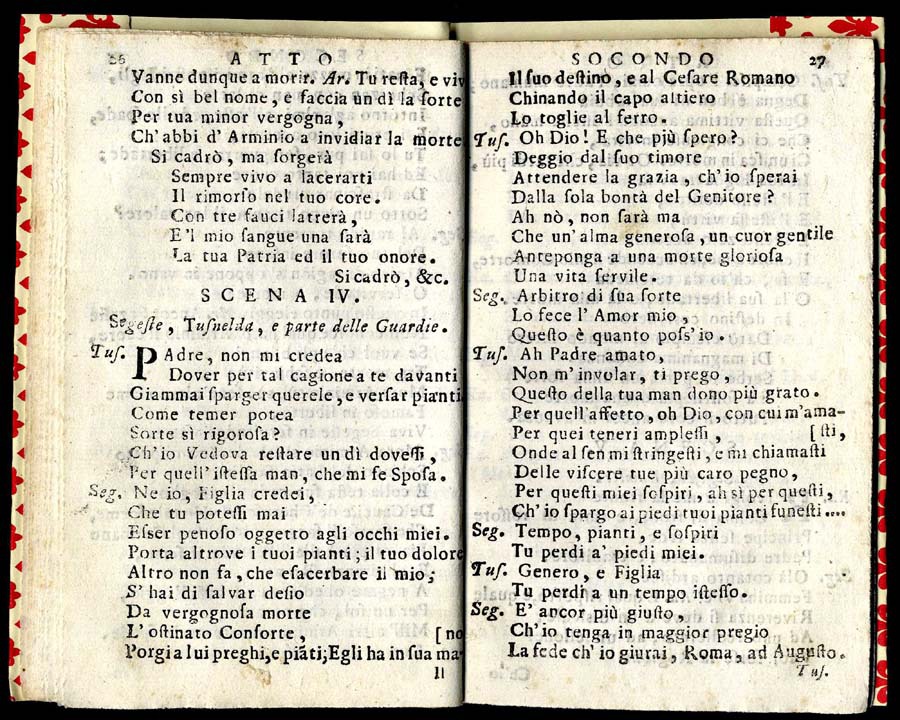 26 ATTO
Vanne dunque a morir. Ar. Tu resta, e viv
Con sì bel nome, e faccia un dì la sorte
Per tua minor vergogna,
Ch'abbi d'Arminio a invidiar la morte
Si cadrò, ma sorgerà
Sempre vivo a lacerarti
Il rimorso nel tuo core.
Con tre fauci latrerà,
E'l mio sangue una sarà
La tua Patria ed il tuo onore.
Si cadrò, &c.
SCENA IV.
Segeste, Tusnelda, e parte delle Guardie.
Tus. PAdre, non mi credea
Dover per tal cagione a te davanti
Giammai sparger querele, e versar pianti
Come temer potea
Sorte sì rigorosa?
Ch'io Vedova restare un dì dovessi,
Per quell'istessa man, che mi fe Sposa.
Seg. Ne io, Figlia credei,
Che tu potessi mai
Esser penoso oggetto agli occhi miei.
Porta altrove i tuoi pianti; il tuo dolore
Altro non fa, che esacerbare il mio;
S'hai di salvar desio
Da vergognosa morte
L'ostinato Consorte, [no
Porgi a lui preghi, e piāti; Egli ha in sua ma-
Il
SOCONDO 27
Il suo destino, e al Cesare Romano
Chinando il capo altiero
Lo toglie al ferro.
Tus. Oh Dio! E che più spero?
Deggio dal suo timore
Attendere la grazia, ch'io sperai
Dalla sola bontà del Genitore?
Ah nò, non sarà ma
Che un'alma generosa, un cuor gentile
Anteponga a una morte gloriosa
Una vita servile.
Seg. Arbitro di sua sorte
Lo fece l'Amor mio,
Questo è quanto poss'io.
Tus. Ah Padre amato,
Non m'involar, ti prego,
Questo della tua man dono più grato.
Per quell'affetto, oh Dio, con cui m'ama-
Per quei teneri amplessi, [sti,
Onde al sen mi stringesti, e mi chiamasti
Delle viscere tue più caro pegno,
Per questi miei sospiri, ah sì per questi,
Ch'io spargo ai piedi tuoi pianti funesti....
Seg. Tempo, pianti, e sospiri
Tu perdi a' piedi miei.
Tus. Genero, e Figlia
Tu perdi a un tempo istesso.
Seg. E' ancor più giusto,
Ch'io tenga in maggior pregio
La fede ch'io giurai, Roma, ad Augusto.
Tus.